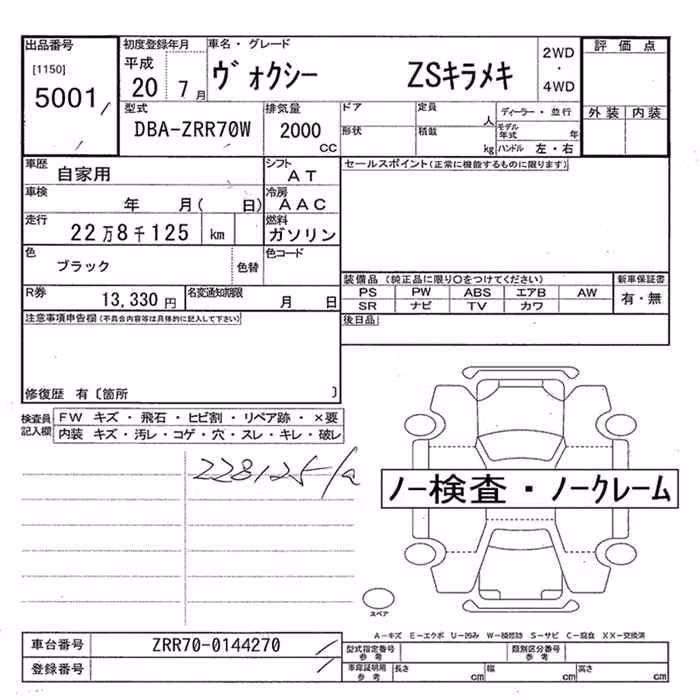 出品番号
[1150]
5001
初度登録年月
平成
20 7月
車名・グレード
ヴォクシー ZSキラメキ
2WD
・
4WD
評価点
外装 内装
型式
DBA-ZRR70W
排気量
2000
CC
ドア
定員
人
ディーラー・並行
形状
積載
kg
モデル年式
年
ハンドル 左・右
車歴
自家用
シフト
AT
セールスポイント(正常に機能するものに限ります)
車検
年 月( 日)
冷房
AAC
走行
22万8千125 km
燃料
ガソリン
色
ブラック
色替
色コード
装備品(純正品に限り○をつけてください)
新車保証書
PS PW ABS エアB AW
有・無
SR ナビ TV カワ
R券
13,330円
名変通知期限
月 日
後日品
注意事項申告欄(不具合内容等は具体的に記入して下さい)
修復歴 有〔箇所 〕
検査員記入欄
FW キズ・飛石・ヒビ割・リペア跡・×要
内装 キズ・汚レ・コゲ・穴・スレ・キレ・破レ
228125
ノー検査・ノークレーム
スペア
A-キズ E-エクボ U-凹み W-補修跡 S-サビ C-腐食 XX-交換済
車台番号
ZRR70-0144270
型式指定番号
参考
類別区分番号
参考
登録番号
車庫証明用
参考
長さ cm 幅 cm 高さ cm